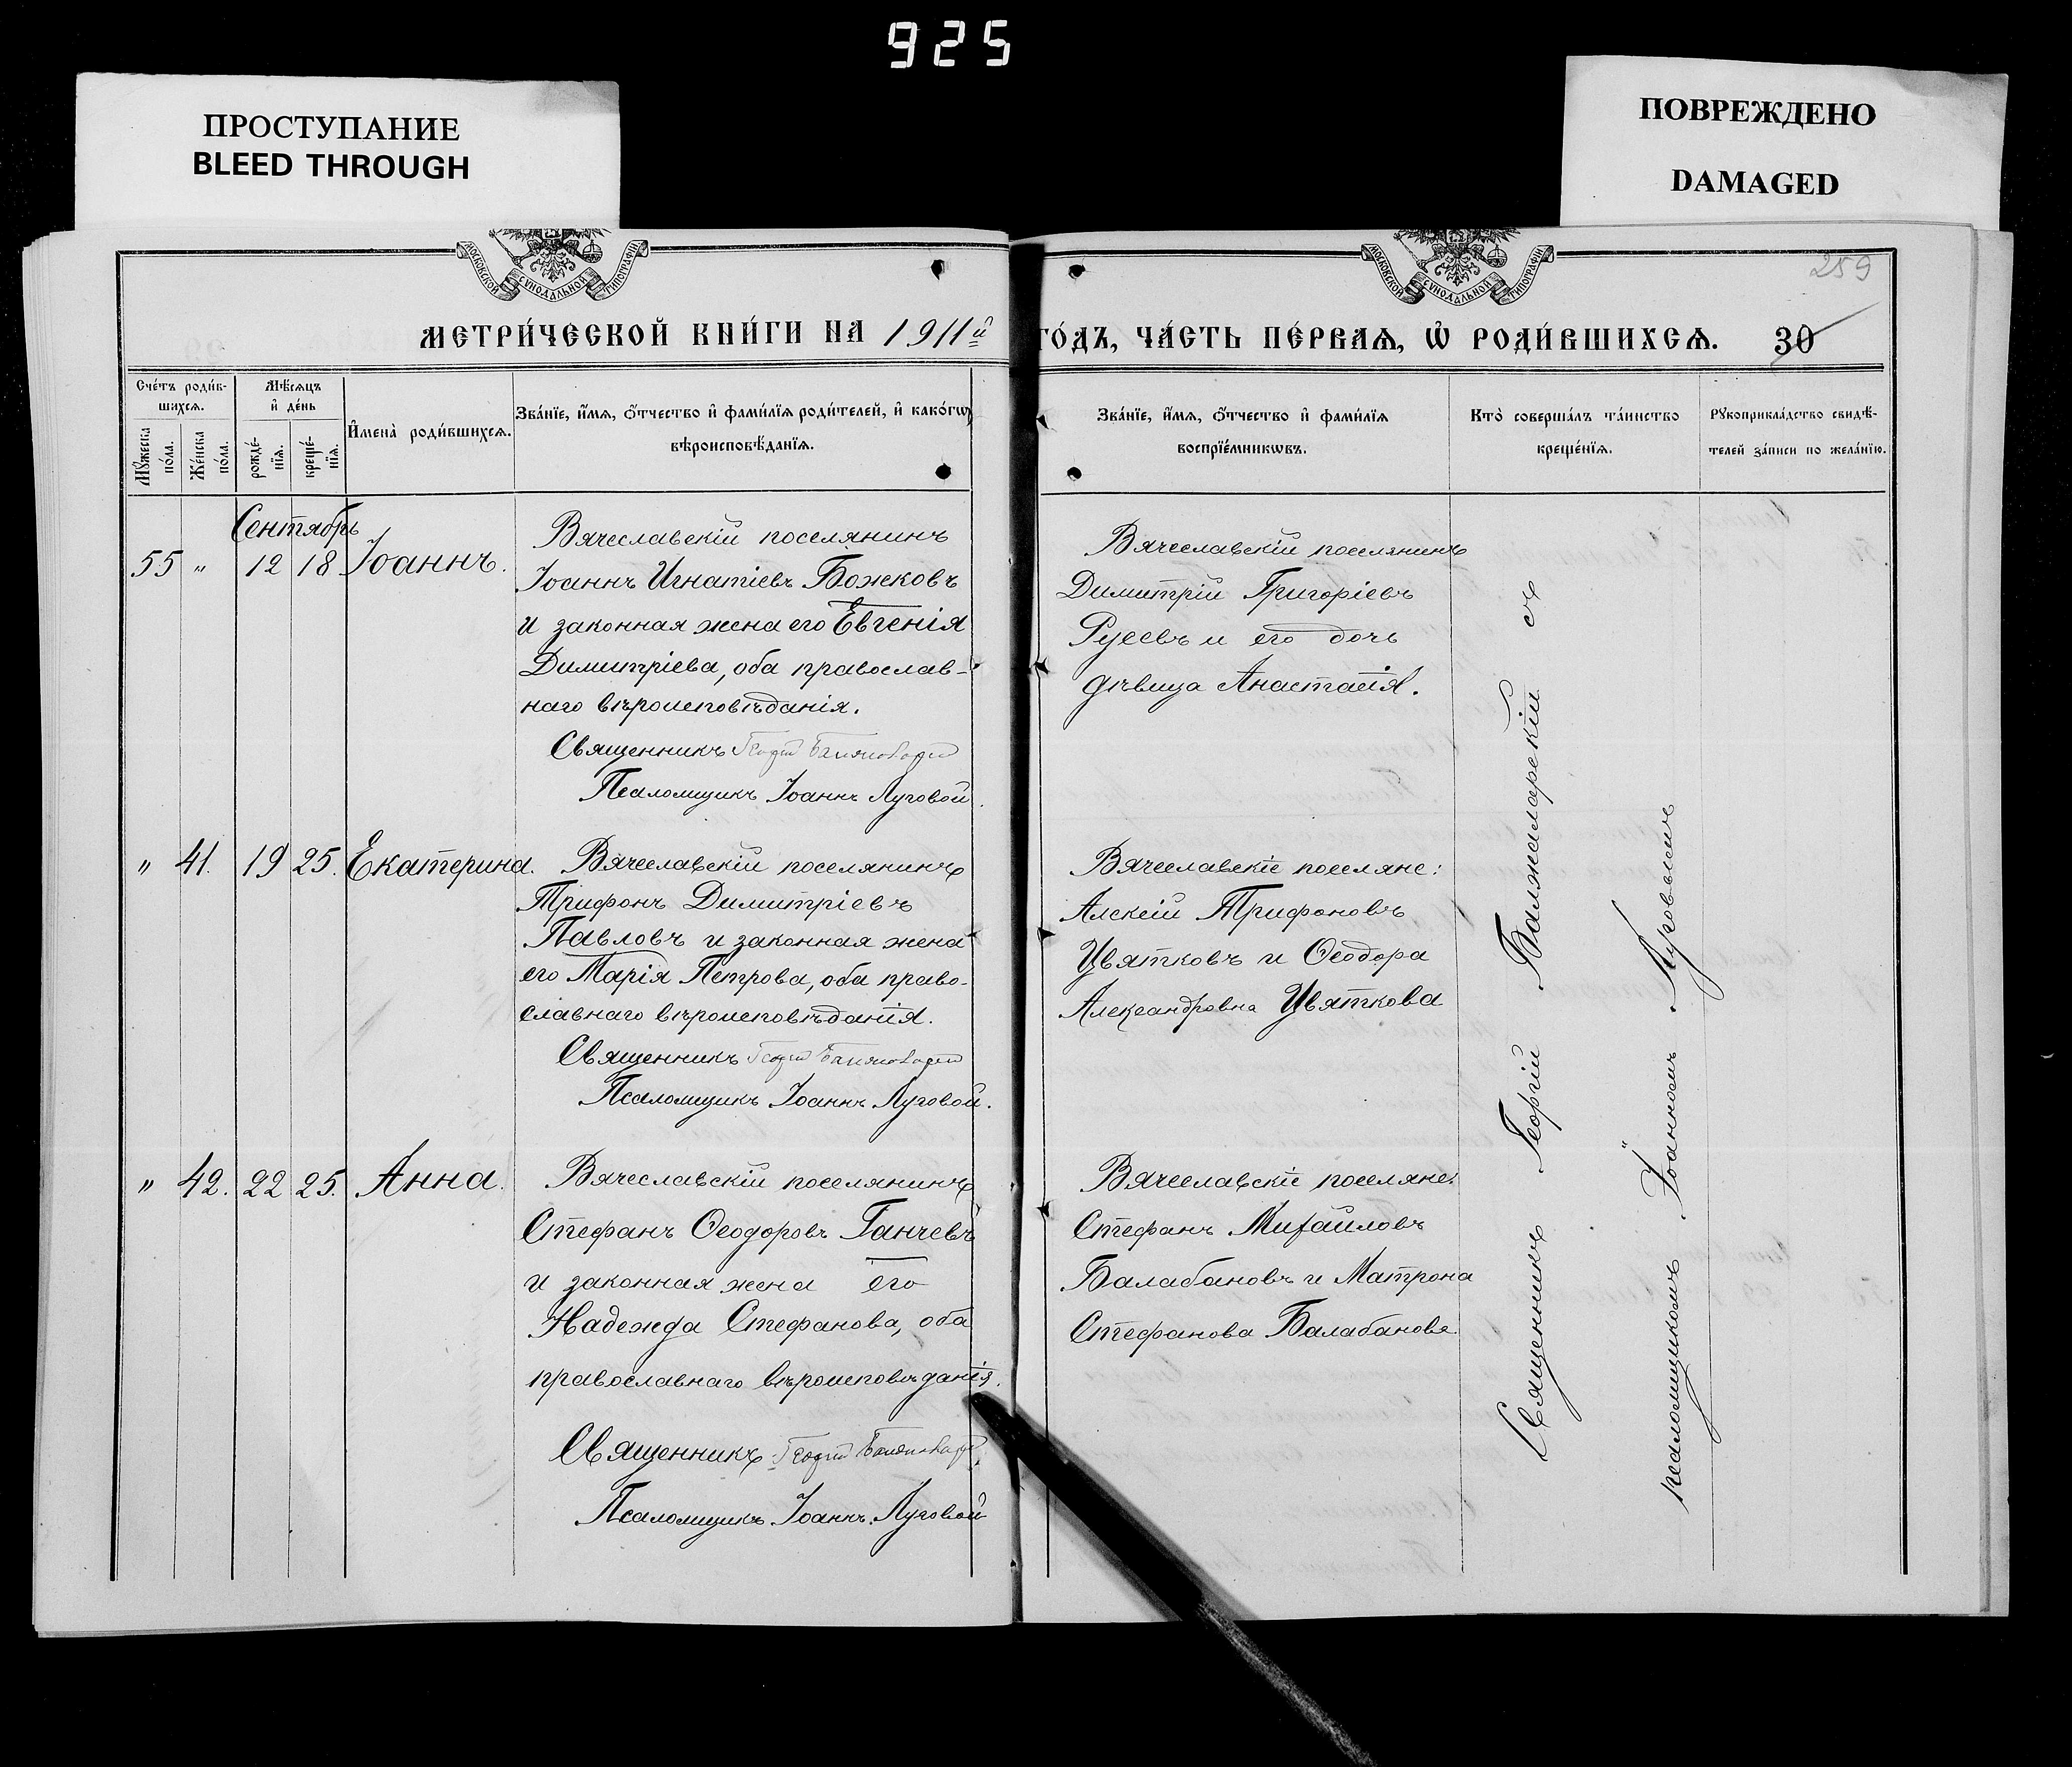 925
ПРОСТУПАНИЕ
BLEED THROUGH
ПОВРЕЖДЕНО
DAMAGED
МОСКОВСКОЙ СѴНОДАЛЬНОЙ ТИПОГРАФІИ
МОСКОВСКОЙ СѴНОДАЛЬНОЙ ТИПОГРАФІИ
259
МЕТРИ́ЧЕСКОЙ КНИ́ГИ НА 1911й
ГО́ДЪ, ЧА́СТЬ ПЕ́РВАѦ, Ѽ РОДИ́ВШИХСѦ. 30
Сче́тъ роди́вшихсѧ.
Мꙋ́жеска по́ла.
Же́нска по́ла.
Мѣ́сѧцъ и҆ де́нь
рожде́нїѧ.
креще́нїѧ.
И҆мена̀ роди́вшихсѧ.
Зва́нїе, и҆́мѧ, ѻ҆́тчество и҆ фами́лїѧ роди́телей, и҆ како́гѡ
вѣроисповѣ́данїѧ.
Зва́нїе, и҆́мѧ, ѻ҆́тчество и҆ фами́лїѧ
воспрїе́мникѡвъ.
Кто̀ соверша́лъ та́инство
креще́нїѧ.
Рꙋкоприкла́дство свидѣ́-
телей за́писи по жела́нїю.
Сентябрь
55 " 12 18 Іоаннъ.
Вячеславскій поселянинъ
Іоаннъ Игнатіевъ Божковъ
и законная жена его Евгенія
Димитріева, оба православ-
наго вѣроисповѣданія.
Священникъ Георгій
Псаломщикъ Іоаннъ Луговой.
Вячеславскій поселянинъ
Димитрій Григоріевъ
Русевъ и его дочь
дѣвица Анастасія.
" 41. 19 25. Екатерина.
Вячеславскій поселянинъ
Трифонъ Димитріевъ
Павловъ и законная жена
его Марія Петрова, оба право-
славнаго вѣроисповѣданія.
Священникъ Георгій
Псаломщикъ Іоаннъ Луговой.
Вячеславскіе поселяне:
Алексій Трифоновъ
Цвятковъ и Ѳеодора
Александровна Цвяткова
" 42. 22 25. Анна.
Вячеславскій поселянинъ
Стефанъ Ѳеодоровъ Ганчевъ
и законная жена его
Надежда Стефанова, оба
православнаго вѣроисповѣданія.
Священникъ Георгій
Псаломщикъ Іоаннъ Луговой
Вячеславскіе поселяне:
Стефанъ Михайловъ
Балабановъ и Матрона
Стефанова Балабанова.
Священникъ Георгій съ
псаломщикомъ Іоанномъ Луговымъ